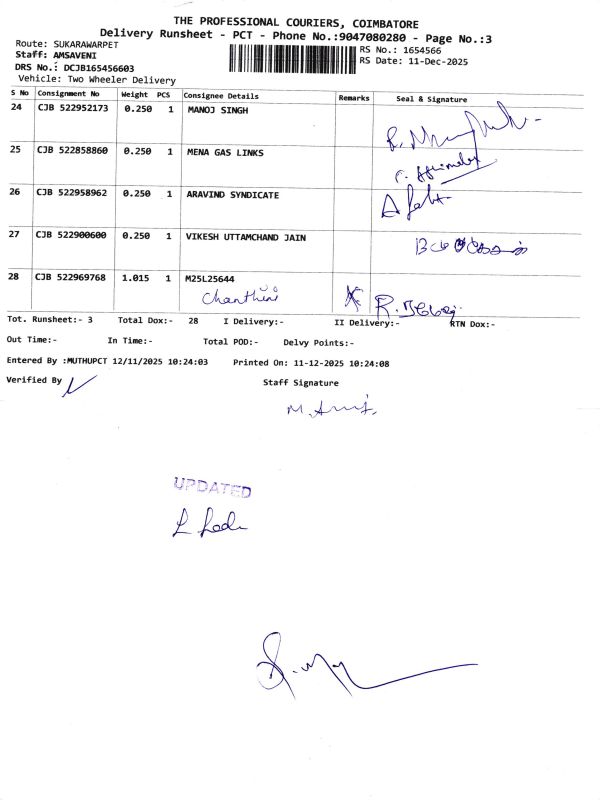 THE PROFESSIONAL COURIERS, COIMBATORE
Delivery Runsheet - PCT - Phone No.:9047080280 - Page No.:3
Route: SUKARAWARPET
RS No.: 1654566
Staff: AMSAVENI
RS Date: 11-Dec-2025
DRS No.: DCJB165456603
Vehicle: Two Wheeler Delivery
S No Consignment No Weight PCS Consignee Details Remarks Seal & Signature
24 CJB 522952173 0.250 1 MANOJ SINGH
25 CJB 522858860 0.250 1 MENA GAS LINKS
26 CJB 522958962 0.250 1 ARAVIND SYNDICATE
27 CJB 522900600 0.250 1 VIKESH UTTAMCHAND JAIN
28 CJB 522969768 1.015 1 M25L25644
Chanthini
Tot. Runsheet:- 3 Total Dox:- 28 I Delivery:- II Delivery:- RTN Dox:-
Out Time:- In Time:- Total POD:- Delvy Points:-
Entered By :MUTHUPCT 12/11/2025 10:24:03 Printed On: 11-12-2025 10:24:08
Verified By Staff Signature
UPDATED